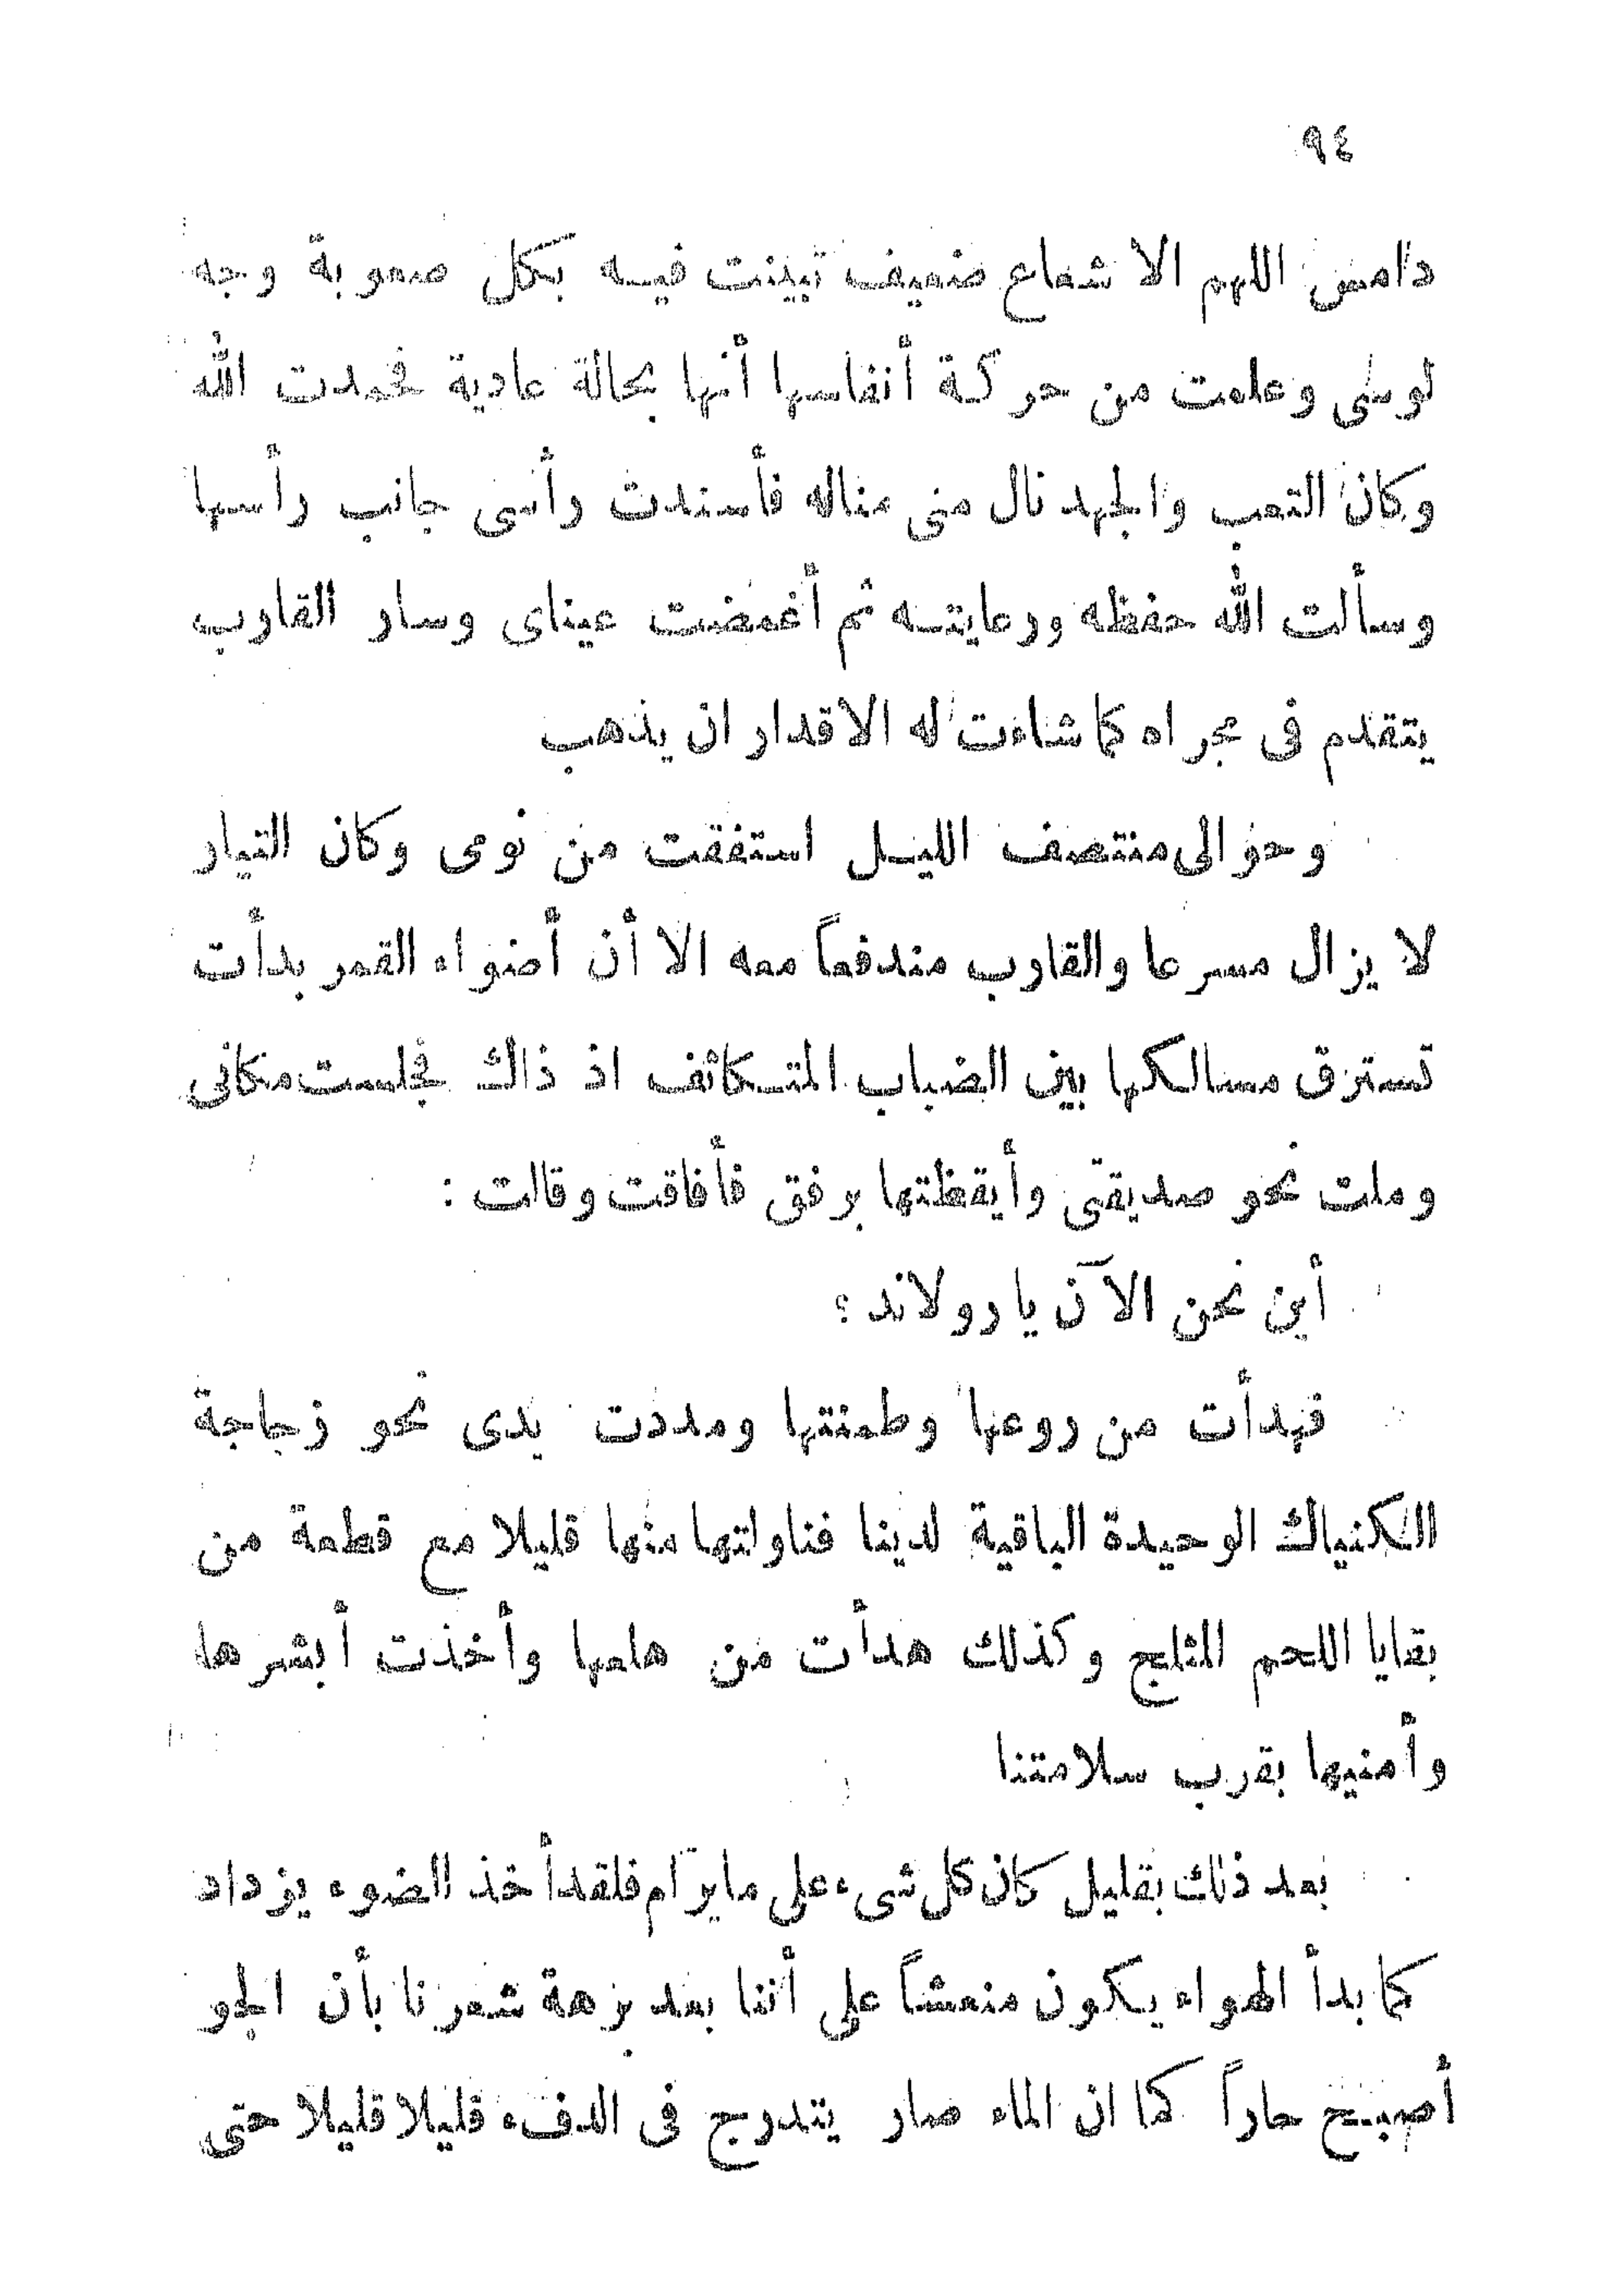 ٩٤
دامس اللهم الا شعاع ضعيف تبينت فيه بكل صعوبة وجه
لوسى وعلمت من حركة أنفاسها أنها بحالة عادية فحمدت الله
وكان التعب والجهد نال منى مناله فأسندت رأسى جانب رأسها
وسألت الله حفظه ورعايته ثم أغمضت عيناى وسار القارب
يتقدم فى مجراه كما شاءت له الاقدار ان يذهب
وحوالى منتصف الليل استفقت من نومى وكان التيار
لا يزال مسرعا والقارب مندفعاً معه الا أن أضواء القمر بدأت
تسترق مسالكها بين الضباب المتكاثف اذ ذاك فجلست مكانى
وملت نحو صديقتى وأيقظتها برفق فأفاقت وقالت :
أين نحن الآن يا رولاند ؟
فهدأت من روعها وطمنتها ومددت يدى نحو زجاجة
الكنياك الوحيدة الباقية لدينا فناولتها منها قليلا مع قطعة من
بقايا اللحم المثلج وكذلك هدأت من هلعها وأخذت أبشرها
وأمنيها بقرب سلامتنا
بعد ذلك بقليل كان كل شىء على ما يرام فلقد أخذ الضوء يزداد
كما بدأ الهواء يكون منعشاً على أننا بعد برهة شعرنا بأن الجو
أصبح حاراً كما ان الماء صار يتدرج فى الدفء قليلا قليلا حتى